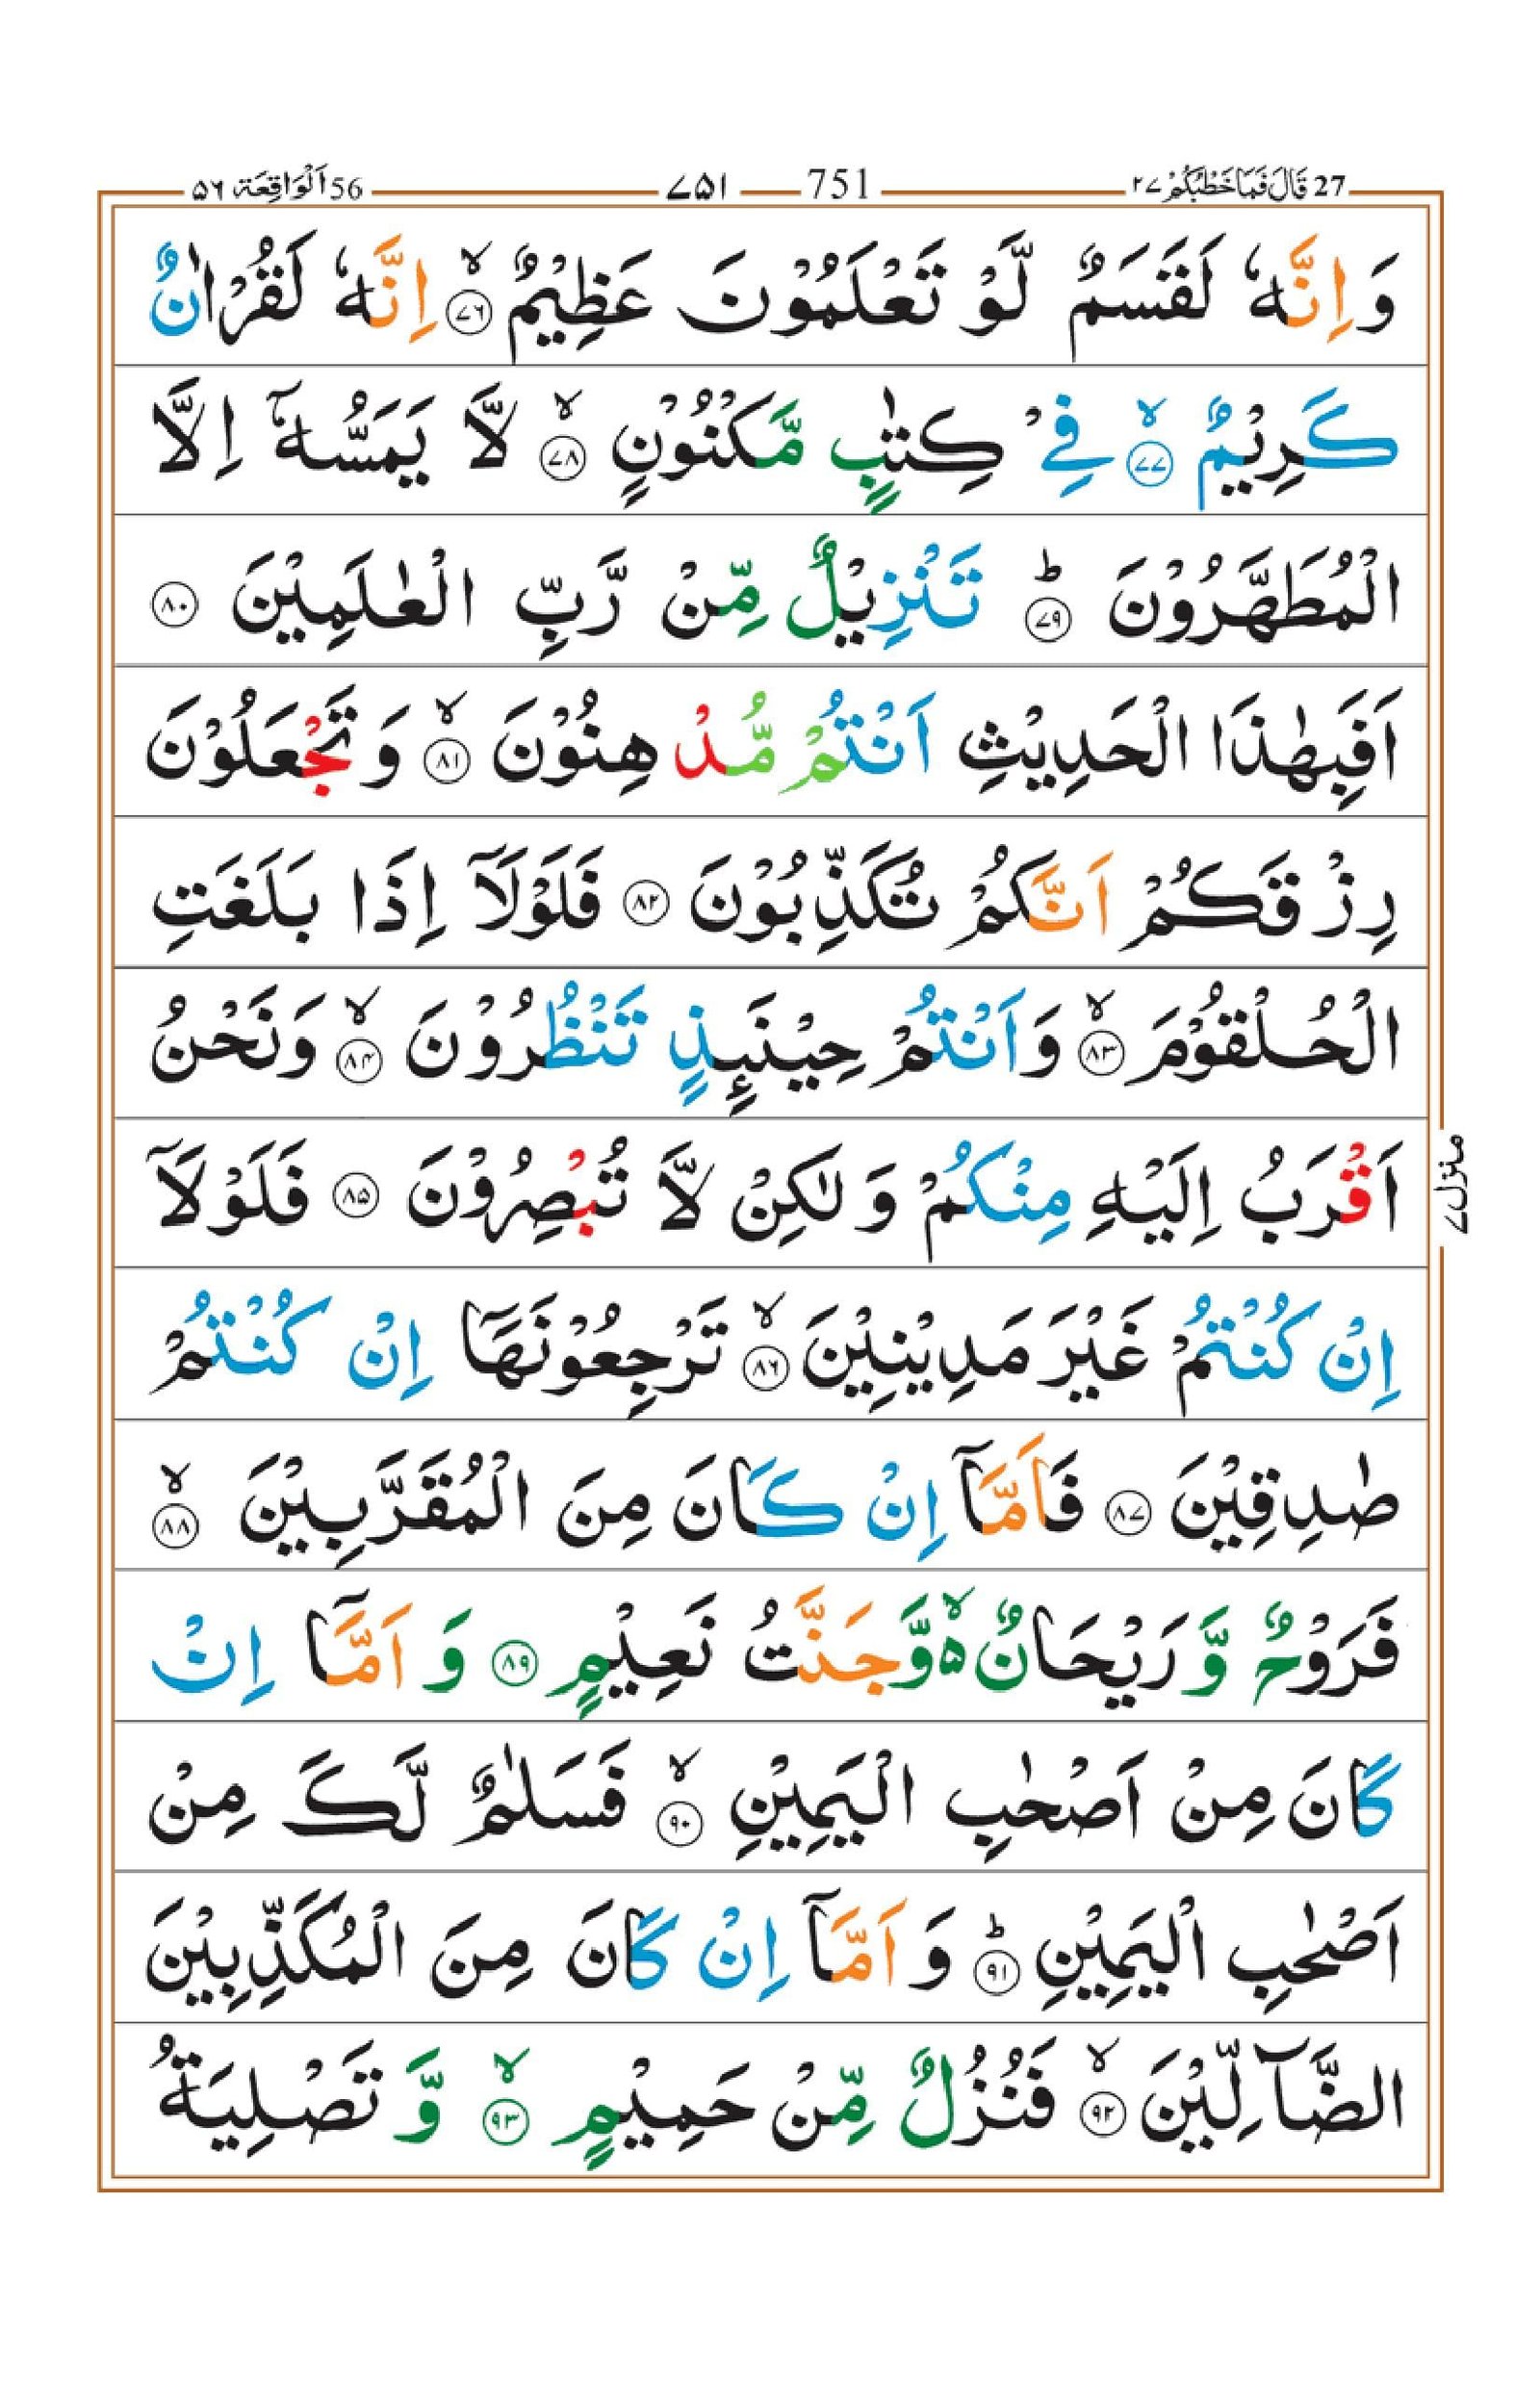 27 قَالَ فَمَا خَطْبُكُمْ ۲۷ 751 ۷۵۱ 56 اَلْوَاقِعَة ۵۶
وَاِنَّهٗ لَقَسَمٌ لَّوْ تَعْلَمُوْنَ عَظِيْمٌ ۙ‏﴿۷۶﴾ اِنَّهٗ لَقُرْاٰنٌ
كَرِيْمٌ ۙ‏﴿۷۷﴾ فِىْ كِتٰبٍ مَّكْنُوْنٍ ۙ‏﴿۷۸﴾ لَّا يَمَسُّهٗۤ اِلَّا
الْمُطَهَّرُوْنَ ؕ‏﴿۷۹﴾ تَنْزِيْلٌ مِّنْ رَّبِّ الْعٰلَمِيْنَ ﴿۸۰﴾
اَفَبِهٰذَا الْحَدِيْثِ اَنْتُمْ مُّدْهِنُوْنَ ۙ‏﴿۸۱﴾ وَ تَجْعَلُوْنَ
رِزْقَكُمْ اَنَّكُمْ تُكَذِّبُوْنَ ﴿۸۲﴾ فَلَوْلَاۤ اِذَا بَلَغَتِ
الْحُلْقُوْمَ ۙ‏﴿۸۳﴾ وَاَنْتُمْ حِيْنَئِذٍ تَنْظُرُوْنَ ۙ‏﴿۸۴﴾ وَنَحْنُ
اَقْرَبُ اِلَيْهِ مِنْكُمْ وَلٰكِنْ لَّا تُبْصِرُوْنَ ﴿۸۵﴾ فَلَوْلَاۤ
اِنْ كُنْتُمْ غَيْرَ مَدِيْنِيْنَ ۙ‏﴿۸۶﴾ تَرْجِعُوْنَهَاۤ اِنْ كُنْتُمْ
صٰدِقِيْنَ ﴿۸۷﴾ فَاَمَّاۤ اِنْ كَانَ مِنَ الْمُقَرَّبِيْنَ ۙ‏﴿۸۸﴾
فَرَوْحٌ وَّ رَيْحَانٌ ۙ۬ وَّجَنَّتُ نَعِيْمٍ ﴿۸۹﴾ وَ اَمَّاۤ اِنْ
كَانَ مِنْ اَصْحٰبِ الْيَمِيْنِ ۙ‏﴿۹۰﴾ فَسَلٰمٌ لَّكَ مِنْ
اَصْحٰبِ الْيَمِيْنِ ؕ‏﴿۹۱﴾ وَ اَمَّاۤ اِنْ كَانَ مِنَ الْمُكَذِّبِيْنَ
الضَّآلِّيْنَ ۙ‏﴿۹۲﴾ فَنُزُلٌ مِّنْ حَمِيْمٍ ۙ‏﴿۹۳﴾ وَّ تَصْلِيَةُ
منزل ۷